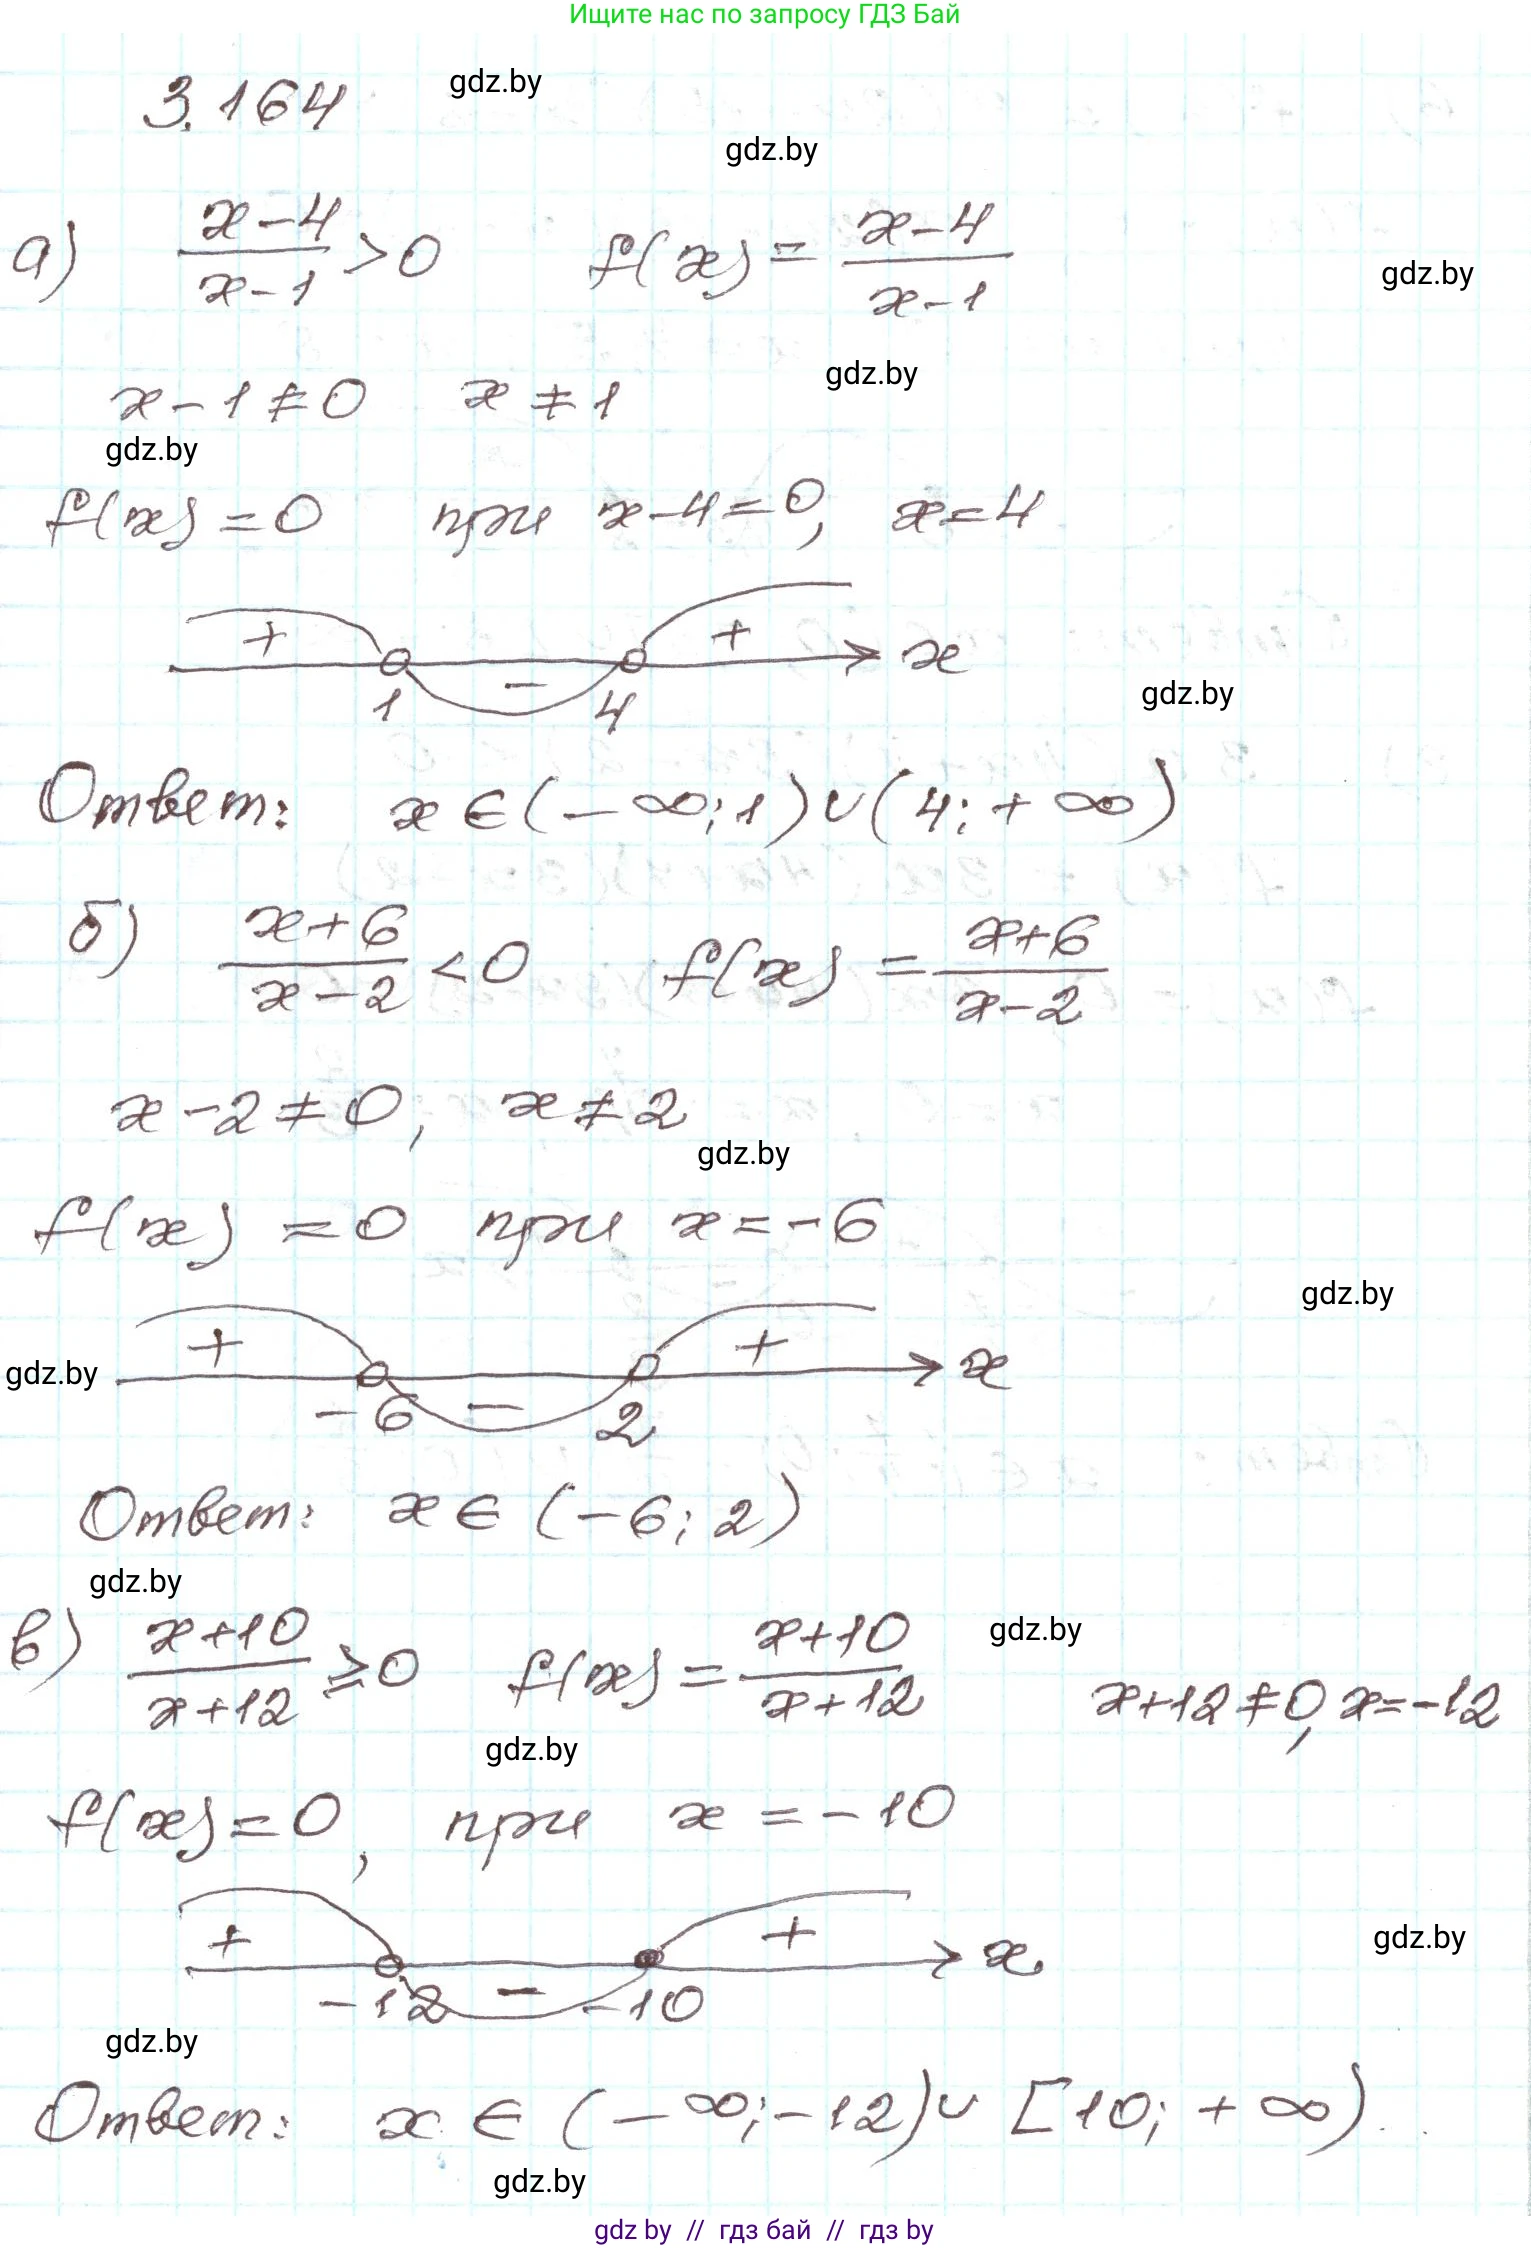 Ищите нас по запросу ГДЗ Бай
3.164 gdz.by
gdz.by
а) (x-4)/(x-1) > 0 f(x) = (x-4)/(x-1) gdz.by
x-1≠0 x≠1 gdz.by
gdz.by
f(x)=0 при x-4=0, x=4
+ - + x
1 4 gdz.by
Ответ: x∈(-∞;1)∪(4;+∞)
б) (x+6)/(x-2) < 0 f(x) = (x+6)/(x-2)
x-2≠0, x≠2
gdz.by
f(x)=0 при x=-6
gdz.by
gdz.by + - + x
-6 2
Ответ: x∈(-6;2)
gdz.by
в) (x+10)/(x+12) ≥ 0 f(x) = (x+10)/(x+12) gdz.by x+12≠0, x=-12
gdz.by
f(x)=0, при x=-10
+ - + x gdz.by
-12 -10
gdz.by
Ответ: x∈(-∞;-12)∪[10;+∞)
gdz.by
gdz by // гдз бай // гдз by